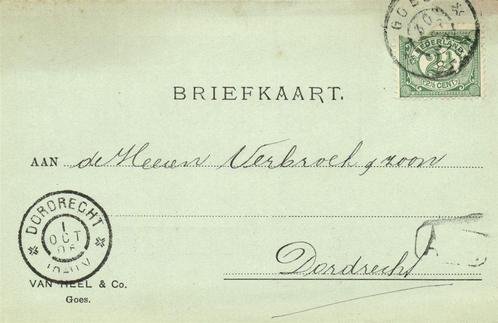 GOES
30
NEDERLAND
2½
2½ CENT
BRIEFKAART.
AAN de Heeren Verbroek & zoon
DORDRECHT
1
OCT
Dordrecht
VAN HEEL & Co.
Goes.